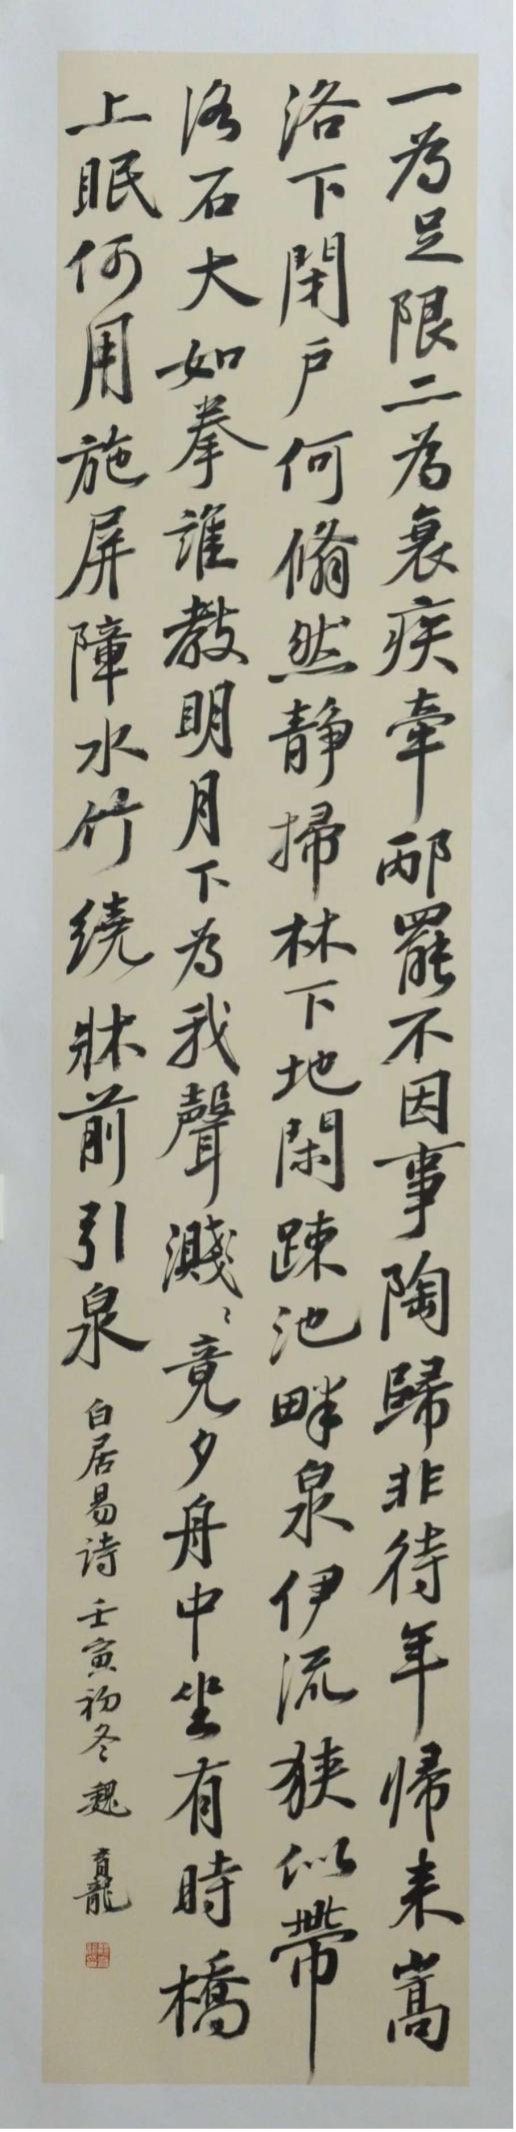 一为足限二为衰疾牵邴罷不因事陶歸非待年帰来嵩
洛下閉户何翛然静掃林下地閑疎池畔泉伊流狭似帶
洛石大如拳誰教明月下为我聲濺〻竟夕舟中坐有時橋
上眠何用施屏障水竹繞牀前引泉
白居易诗 壬寅初冬 魏育龍